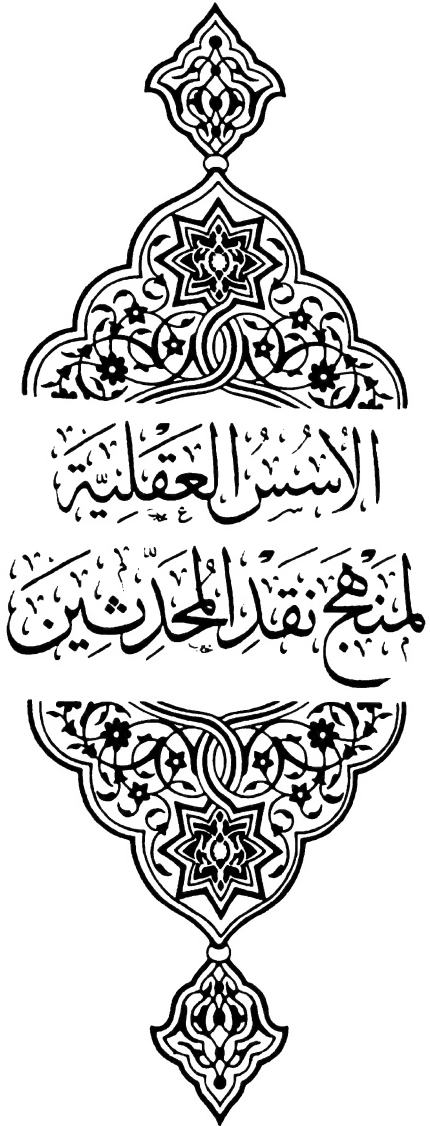 الأُسُسُ العَقْلِيَّةُ
لِمَنْهَجِ نَقْدِ المُحَدِّثِينَ